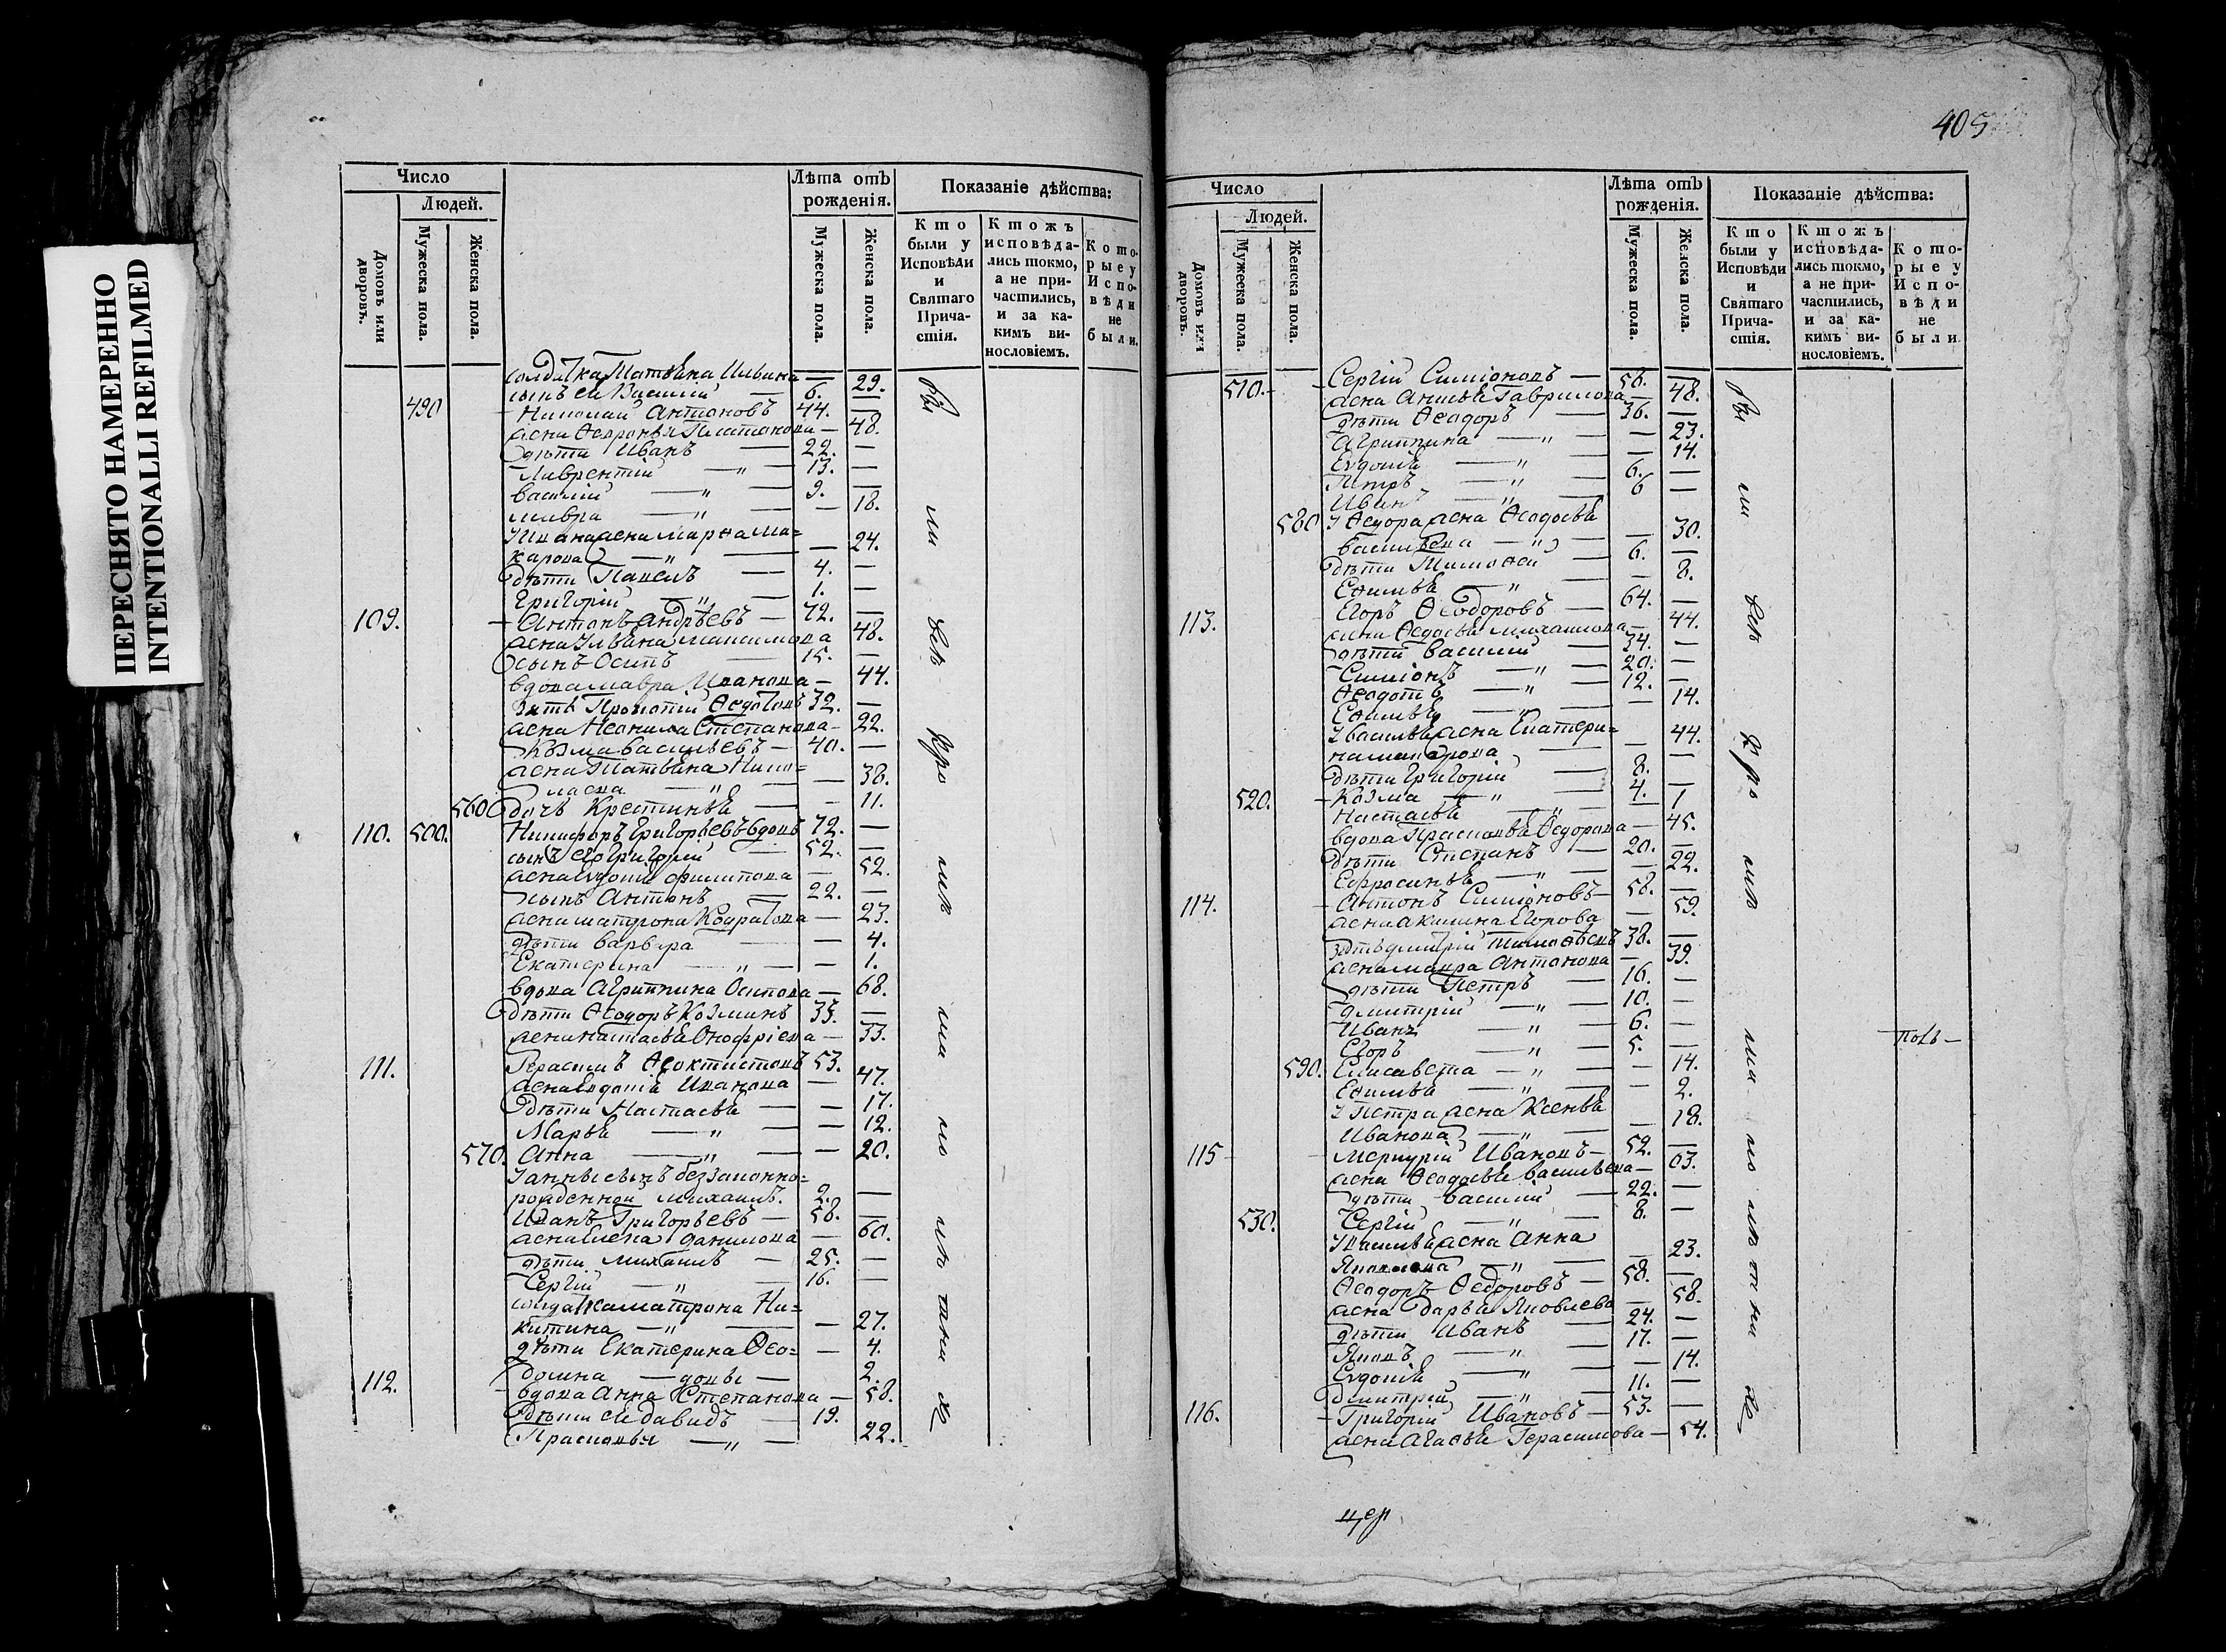 ПЕРЕСНЯТО НАМЕРЕННО
INTENTIONALLI REFILMED
Число
Людей.
Домовъ или дворовъ.
Мужеска пола.
Женска пола.
Лѣта отъ рожденія.
Мужеска пола.
Женска пола.
Показаніе дѣйства:
Кто были у Исповѣди и Святаго Прича-стія.
Ктожъ исповѣда-лись токмо, а не при-частились, и за ка-кимъ ви-нословіемъ.
Кото-рые у Испо-вѣди не были.
солдатка Татьяна Ильина — 29.
сынъ ея Василий — 6. —
490 Николай Антоновъ 44. —
жена Ѳевронья Платонова — 48.
дѣти Иванъ — 22. —
Лаврентій — " — 13. —
Василий — " — 9. —
Мавра — " — — 18.
У Ивана жена Марѳа Ма=
карова — " — — 24.
дѣти Павелъ — 4. —
Григорій — " — 1. —
109. Антонъ Андрѣевъ — 72. —
жена Ульяна Максимова 48.
сынъ Осипъ — 15. —
вдова Мавра Иванова — 44.
зять Прокопій Ѳедотовъ 32. —
жена Неонила Степанова — 22.
Козма Васильевъ — 40. —
жена Татьяна Нико=
лаева — " — — 38.
560 дочь Крестинья — — 11.
110. 500. Никифоръ Григорьевъ вдовъ 72. —
сынъ его Григорій — 52. —
жена Евдокия Филипова — 52.
сынъ Антонъ — 22. —
жена Матрона Кондратова — 23.
дѣти Варвара — — 4.
Екатерина — " — — 1.
вдова Агриппина Осипова — 68.
дѣти Ѳеодоръ Козминъ 33. —
жена Настасья Онофріева — 33.
111. Герасимъ Ѳеоктистовъ 53. —
жена Евдокія Иванова — 47.
дѣти Настасья — — 17.
Марья — " — — 12.
570. Анна — " — — 20.
У Анны сынъ беззаконно=
рожденной Михаилъ. 2. —
Иванъ Григорьевъ — 58. —
жена Елена Данилова — 60.
дѣти Михаилъ — 25. —
Сергій — " — 16. —
солдатка Матрона Ни=
китина — " — — 27.
дѣти Екатерина Ѳео= — 4.
Домна — довы — 2.
112. вдова Анна Степанова — 58.
дѣти ея Давидъ — 19.
Прасковья — " — 22.
405
Число
Людей.
Домовъ или дворовъ.
Мужеска пола.
Женска пола.
Лѣта отъ рожденія.
Мужеска пола.
Женска пола.
Показаніе дѣйства:
Кто были у Исповѣди и Святаго Прича-стія.
Ктожъ исповѣда-лись токмо, а не при-частились, и за ка-кимъ ви-нословіемъ.
Кото-рые у Испо-вѣди не были
510. Сергій Симіоновъ — 56. —
жена Анисья Гаврилова — 48.
дѣти Ѳеодоръ — 36. —
Агриппина — " — — 23.
Евдокія — " — — 14.
Петръ — " — 6. —
Иванъ — " — 6 —
580 У Ѳедора жена Ѳеодосья
Васильева — " — — 30.
дѣти Тимоѳей — 6. —
Еѳимья — " — — 8.
113. Егоръ Ѳеодоровъ — 64. —
жена Ѳедосья Михаилова — 44.
дѣти Василий — 34. —
Симіонъ — " — 20. —
Ѳеодотъ — " — 12. —
Еѳимья — " — — 14.
У Василья жена Екатери=
на Макарова — — 44.
дѣти Григорій — 8. —
520. Козма — " — 4. —
Настасья — " — — 1
вдова Прасковья Ѳедорова — 45.
дѣти Степанъ — 20. —
Ефросинья — " — — 22.
114. Антонъ Симіоновъ — 58. —
жена Акилина Егорова — 59.
зять Дмитрій Тимоѳеевъ 38. —
жена Мавра Антонова — 39.
дѣти Петръ — 16. —
Дмитрій — " — 10. —
Иванъ — " — 6. —
Егоръ — " — 5. —
590. Елисавета — " — — 14.
Еѳимья — " — — 2.
У Петра жена Ксенья
Иванова — " — — 18.
115 Меркурій Ивановъ — 52. —
жена Ѳеодосья Васильева — 63.
дѣти Василий — 22. —
530. Сергій — " — 8. —
У Василья жена Анна
Яковлева — " — — 23.
Ѳеодоръ Ѳедоровъ — 58. —
жена Дарья Яковлева — 58.
дѣти Иванъ — 24. —
Яковъ — " — 17. —
Евдокія — " — — 14.
Дмитрій — " — 11. —
116. Григорій Ивановъ — 53. —
жена Агаѳья Герасимова — 54.
цер